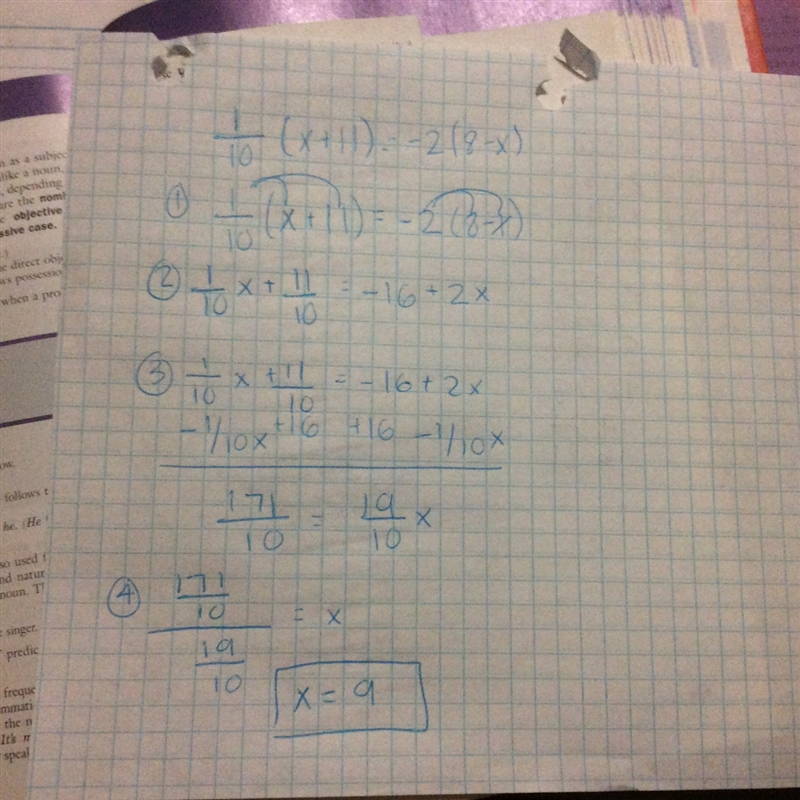 1/10 (x+11) = -2(8-x)
① 1/10 (x+11) = -2(8-x)
② 1/10 x + 11/10 = -16 + 2x
③ 1/10 x + 11/10 = -16 + 2x
-1/10x +16 +16 -1/10x
171/10 = 19/10 x
④ 171/10 / 19/10 = x
x = 9
as a subjec
like a noun,
depending
are the nomi
objective
ssive case.
he direct obje
ws possessio
when a pro
ow.
follows t
he. (He
so used f
nd natur
noun. T
e singer.
predic
freque
mmati
the n
It's n
speal